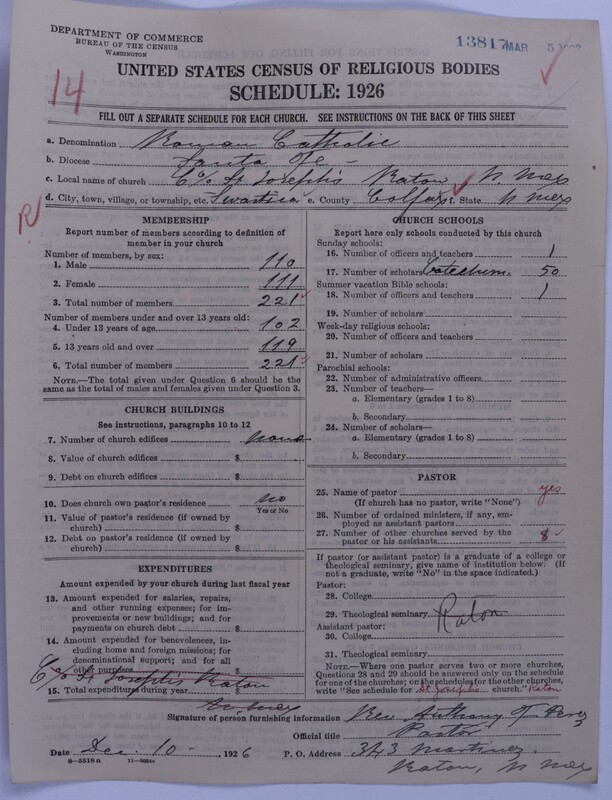 DEPARTMENT OF COMMERCE
BUREAU OF THE CENSUS
WASHINGTON
13817 MAR 5
14
UNITED STATES CENSUS OF RELIGIOUS BODIES
SCHEDULE: 1926
FILL OUT A SEPARATE SCHEDULE FOR EACH CHURCH. SEE INSTRUCTIONS ON THE BACK OF THIS SHEET
a. Denomination Roman Catholic
b. Diocese Santa Fe
c. Local name of church C/o St Joseph's Raton N. Mex
d. City, town, village, or township, etc. Swastica e. County Colfax f. State N Mex
R
MEMBERSHIP
Report number of members according to definition of
member in your church
Number of members, by sex:
1. Male 110
2. Female 111
3. Total number of members 221
Number of members under and over 13 years old:
4. Under 13 years of age 102
5. 13 years old and over 119
6. Total number of members 221
NOTE.—The total given under Question 6 should be
same as the total of males and females given under Question 3.
CHURCH BUILDINGS
See instructions, paragraphs 10 to 12
7. Number of church edifices none
8. Value of church edifices $
9. Debt on church edifices $
10. Does church own pastor's residence no
Yes or No
11. Value of pastor's residence (if owned by
church) $
12. Debt on pastor's residence (if owned by
church) $
EXPENDITURES
Amount expended by your church during last fiscal year
13. Amount expended for salaries, repairs,
and other running expenses; for im-
provements or new buildings; and for
payments on church debt $
14. Amount expended for benevolences, in-
cluding home and foreign missions; for
denominational support; and for all
other purposes $
C/o St Joseph's Raton
15. Total expenditures during year
N Mex
CHURCH SCHOOLS
Report here only schools conducted by this church
Sunday schools:
16. Number of officers and teachers 1
17. Number of scholars Catechism 50
Summer vacation Bible schools:
18. Number of officers and teachers 1
19. Number of scholars
Week-day religious schools:
20. Number of officers and teachers
21. Number of scholars
Parochial schools:
22. Number of administrative officers
23. Number of teachers—
a. Elementary (grades 1 to 8)
b. Secondary
24. Number of scholars—
a. Elementary (grades 1 to 8)
b. Secondary
PASTOR
25. Name of pastor yes
(If church has no pastor, write "None")
26. Number of ordained ministers, if any, em-
ployed as assistant pastors
27. Number of other churches served by the
pastor or his assistants 8
If pastor (or assistant pastor) is a graduate of a college or
theological seminary, give name of institution below. (If
not a graduate, write "No" in the space indicated.)
Pastor:
28. College
29. Theological seminary Raton
Assistant pastor:
30. College
31. Theological seminary
NOTE.—Where one pastor serves two or more churches,
Questions 28 and 29 should be answered only on the schedule
for one of the churches; on the schedules for the other churches,
write "See schedule for St Josephs church." Raton
Signature of person furnishing information Rev Anthony
Official title Pastor
Date Dec. 10 - , 1926 P. O. Address 343 Martinez.
8—5518a 11—
Raton, N Mex